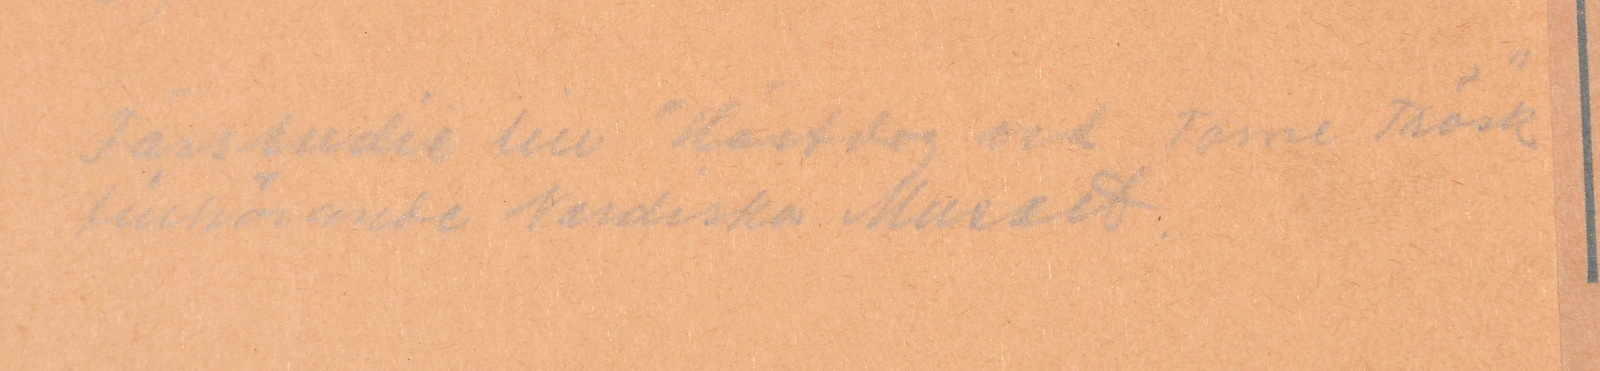 Färstudie till "Höstdag vid Torne Träsk"
tillhörande Nordiska Museet.